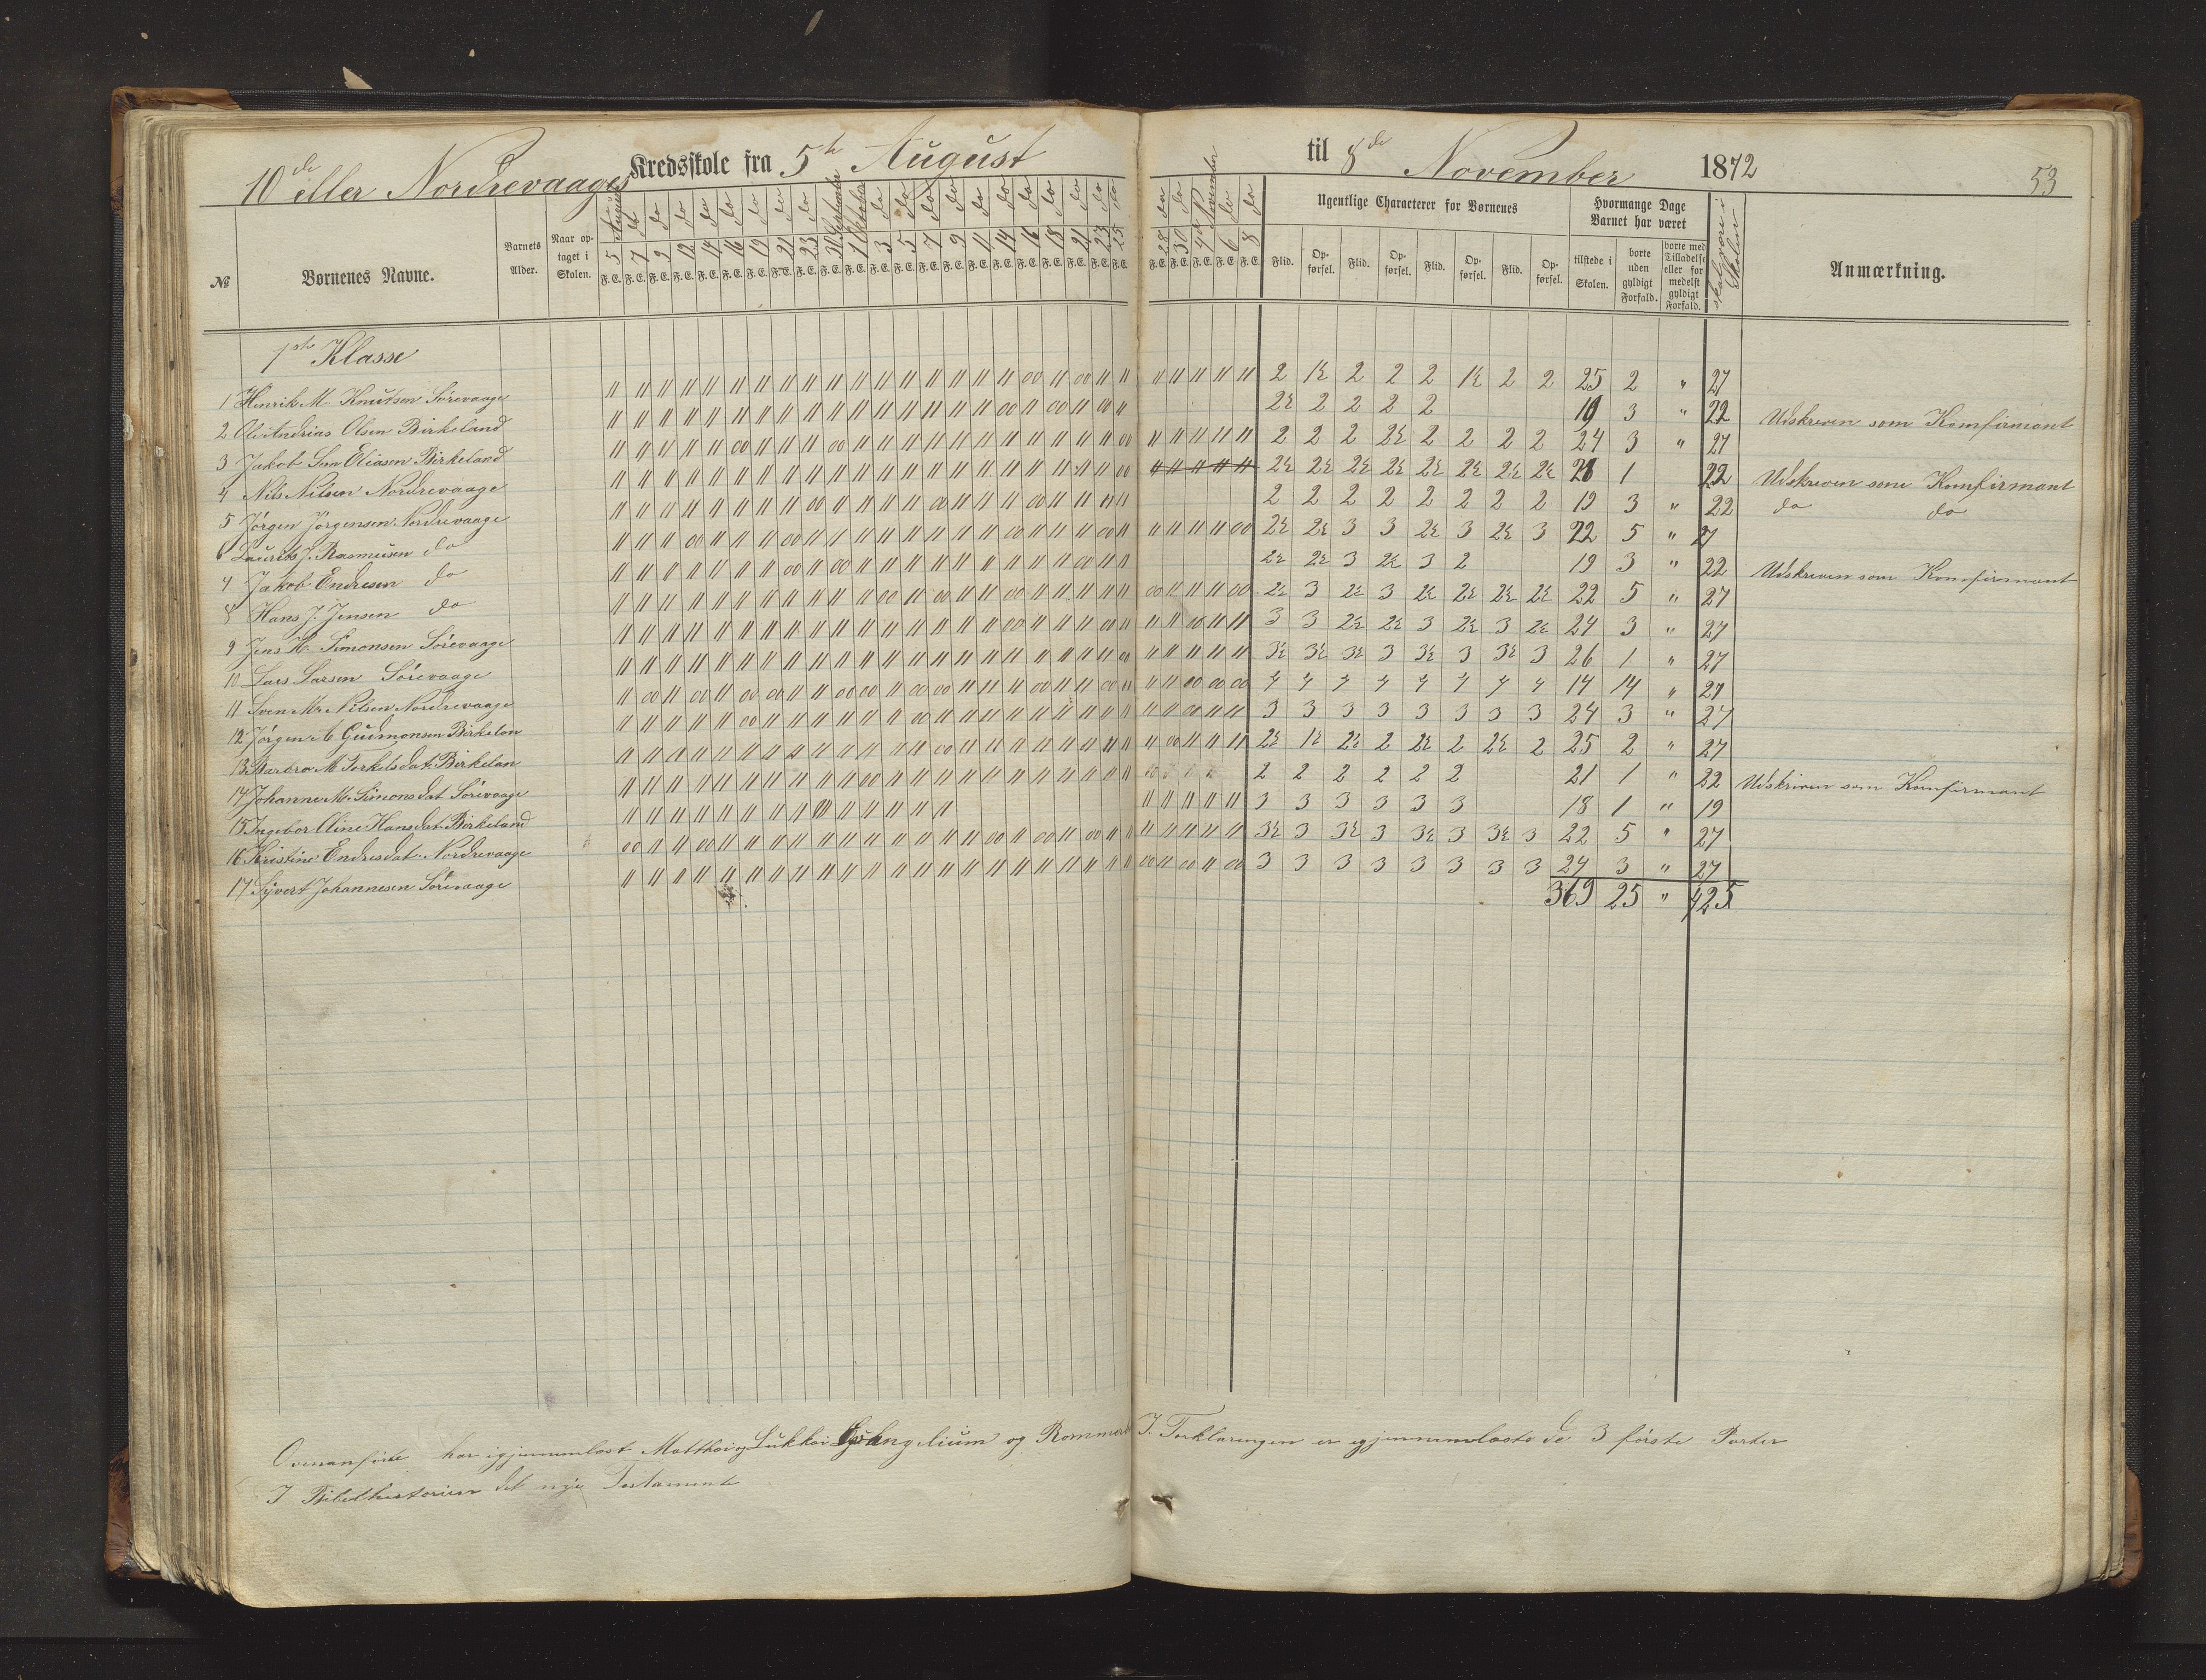 10de eller Nordrevaages Kredsskole fra 5te August til 8de November 1872 53
№ Børnenes Navne. Barnets Alder. Naar optaget i Skolen. 5 August 7 dt 9 do 12 do 14 do 16 do 19 do 21 do 23 do 1 October 3 do 5 do 7 do 9 do 11 do 14 do 16 do 18 do 21 do 23 do 25 do 28 do 30 do 4 November 6 do 8 do
F. E.
Ugentlige Characterer for Børnenes
Flid. Opførsel. Flid. Opførsel. Flid. Opførsel. Flid. Opførsel.
Hvormange Dage Barnet har været
tilstede i Skolen. borte uden gyldigt Forfald. borte med Tilladelse eller formedelst gyldigt Forfald. skal være i Skolen
Anmærkning.
1ste Klasse
1 Henrik M. Knutsen Sørevaage 2 1½ 2 2 2 1½ 2 2 25 2 " 27
2 Ole Andrias Olsen Birkeland 2½ 2 2 2 2 19 3 " 22 Udskreven som Komfirmant
3 Jakob Eliasen Birkeland 2 2 2 2½ 2 2 2 2 24 3 " 27
4 Nils Nilsen Nordrevaage 2½ 2½ 2½ 2½ 2½ 2½ 2½ 2½ 1 22 Udskreven som Komfirmant
5 Jørgen Jørgensen Nordrevaage 2 2 2 2 2 2 2 2 19 3 " 22 do do
6 Laurits J. Rasmusen do 2½ 2½ 3 3 2½ 3 2½ 3 22 5 " 27
7 Jakob Endresen do 2½ 2½ 3 2½ 3 2 19 3 " 22 Udskreven som Komfirmant
8 Hans J. Jensen do 2½ 3 2½ 3 2½ 2½ 2½ 2½ 22 5 " 27
9 Jens H. Simonsen Sørevaage 3 3 2½ 2½ 3 2½ 3 2½ 24 3 " 27
10 Lars Larsen Sørevaage 3½ 3½ 3½ 3 3½ 3 3½ 3 26 1 " 27
11 Sven M. Nilsen Nordrevaage 4 4 4 4 4 4 4 4 14 14 " 27
12 Jørgen A Gudmonsen Birkelan 3 3 3 3 3 3 3 3 24 3 " 27
13 Barbro M Torkelsdat. Birkelan 2½ 1½ 2½ 2 2½ 2 2½ 2 25 2 " 27
14 Johanne M. Simonsdat Sørevaage 2 2 2 2 2 2 21 1 " 22 Udskriven som Komfirmant
15 Ingebor Oline Hansdat. Birkeland 3 3 3 3 3 3 18 1 " 19
16 Kristine Endresdat. Nordrevaage 3½ 3 3½ 3 3½ 3 3½ 3 22 5 " 27
17 Syvert Johannesen Sørevaage 3 3 3 3 3 3 3 3 24 3 " 27
369 25 " 425
Ovenanførte har igjennemlæst Matthæi og Lukkæi Evangelium og Rommerb I. Forklaringen er igjennemlæste de 3 første Parter
I Bibelhistorien det nye Testamente